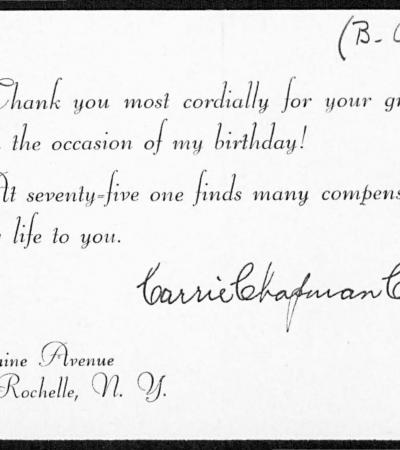 (B-
Thank you most cordially for your gr
the occasion of my birthday!
At seventy-five one finds many compens
life to you.
Carrie Chapman C
ine Avenue
Rochelle, N. Y.